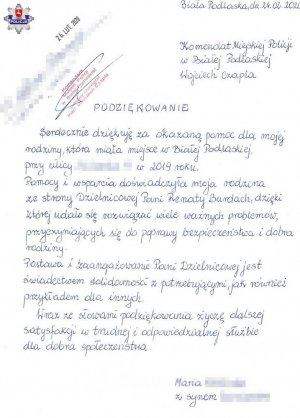 Biała Podlaska, dn 24.02.2020
POLICJA
26 LUT. 2020
Komendat Miejskiej Policji
w Białej Podlaskiej
Wojciech Czapla
PODZIĘKOWANIE
Serdecznie dziękuję za okazaną pomoc dla mojej
rodziny, która miała miejsce w Białej Podlaskiej
przy ulicy w 2019 roku.
Pomocy i wsparcia doświadczyła moja rodzina
ze strony Dzielnicowej Pani Renaty Burdach, dzięki
której udało się rozwiązać wiele ważnych problemów,
przyczyniających się do poprawy bezpieczeństwa i dobra
rodziny.
Postawa i zaangażowanie Pani Dzielnicowej jest
świadectwem solidarności z potrzebującymi, jak również
przykładem dla innych.
Wraz ze słowami podziękowania życzę dalszej
satysfakcji w trudnej i odpowiedzialnej służbie
dla dobra społeczeństwa.
Maria
z synem